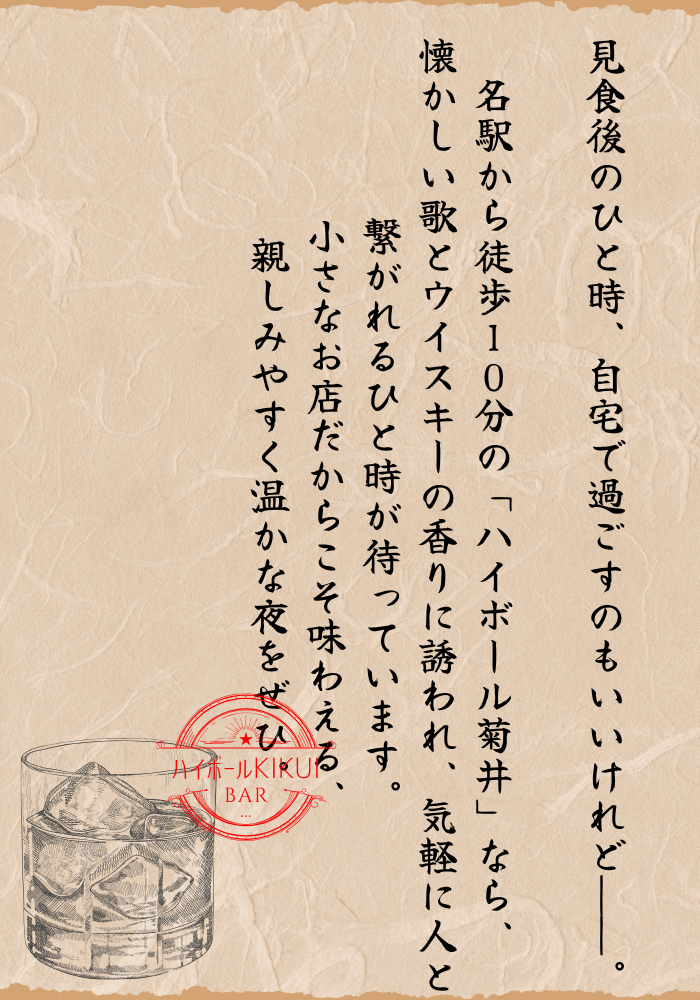 見食後のひと時、自宅で過ごすのもいいけれど――。
名駅から徒歩10分の「ハイボール菊井」なら、
懐かしい歌とウイスキーの香りに誘われ、気軽に人と
繋がれるひと時が待っています。
小さなお店だからこそ味わえる、
親しみやすく温かな夜をぜひ。
ハイボールKIKUI
BAR